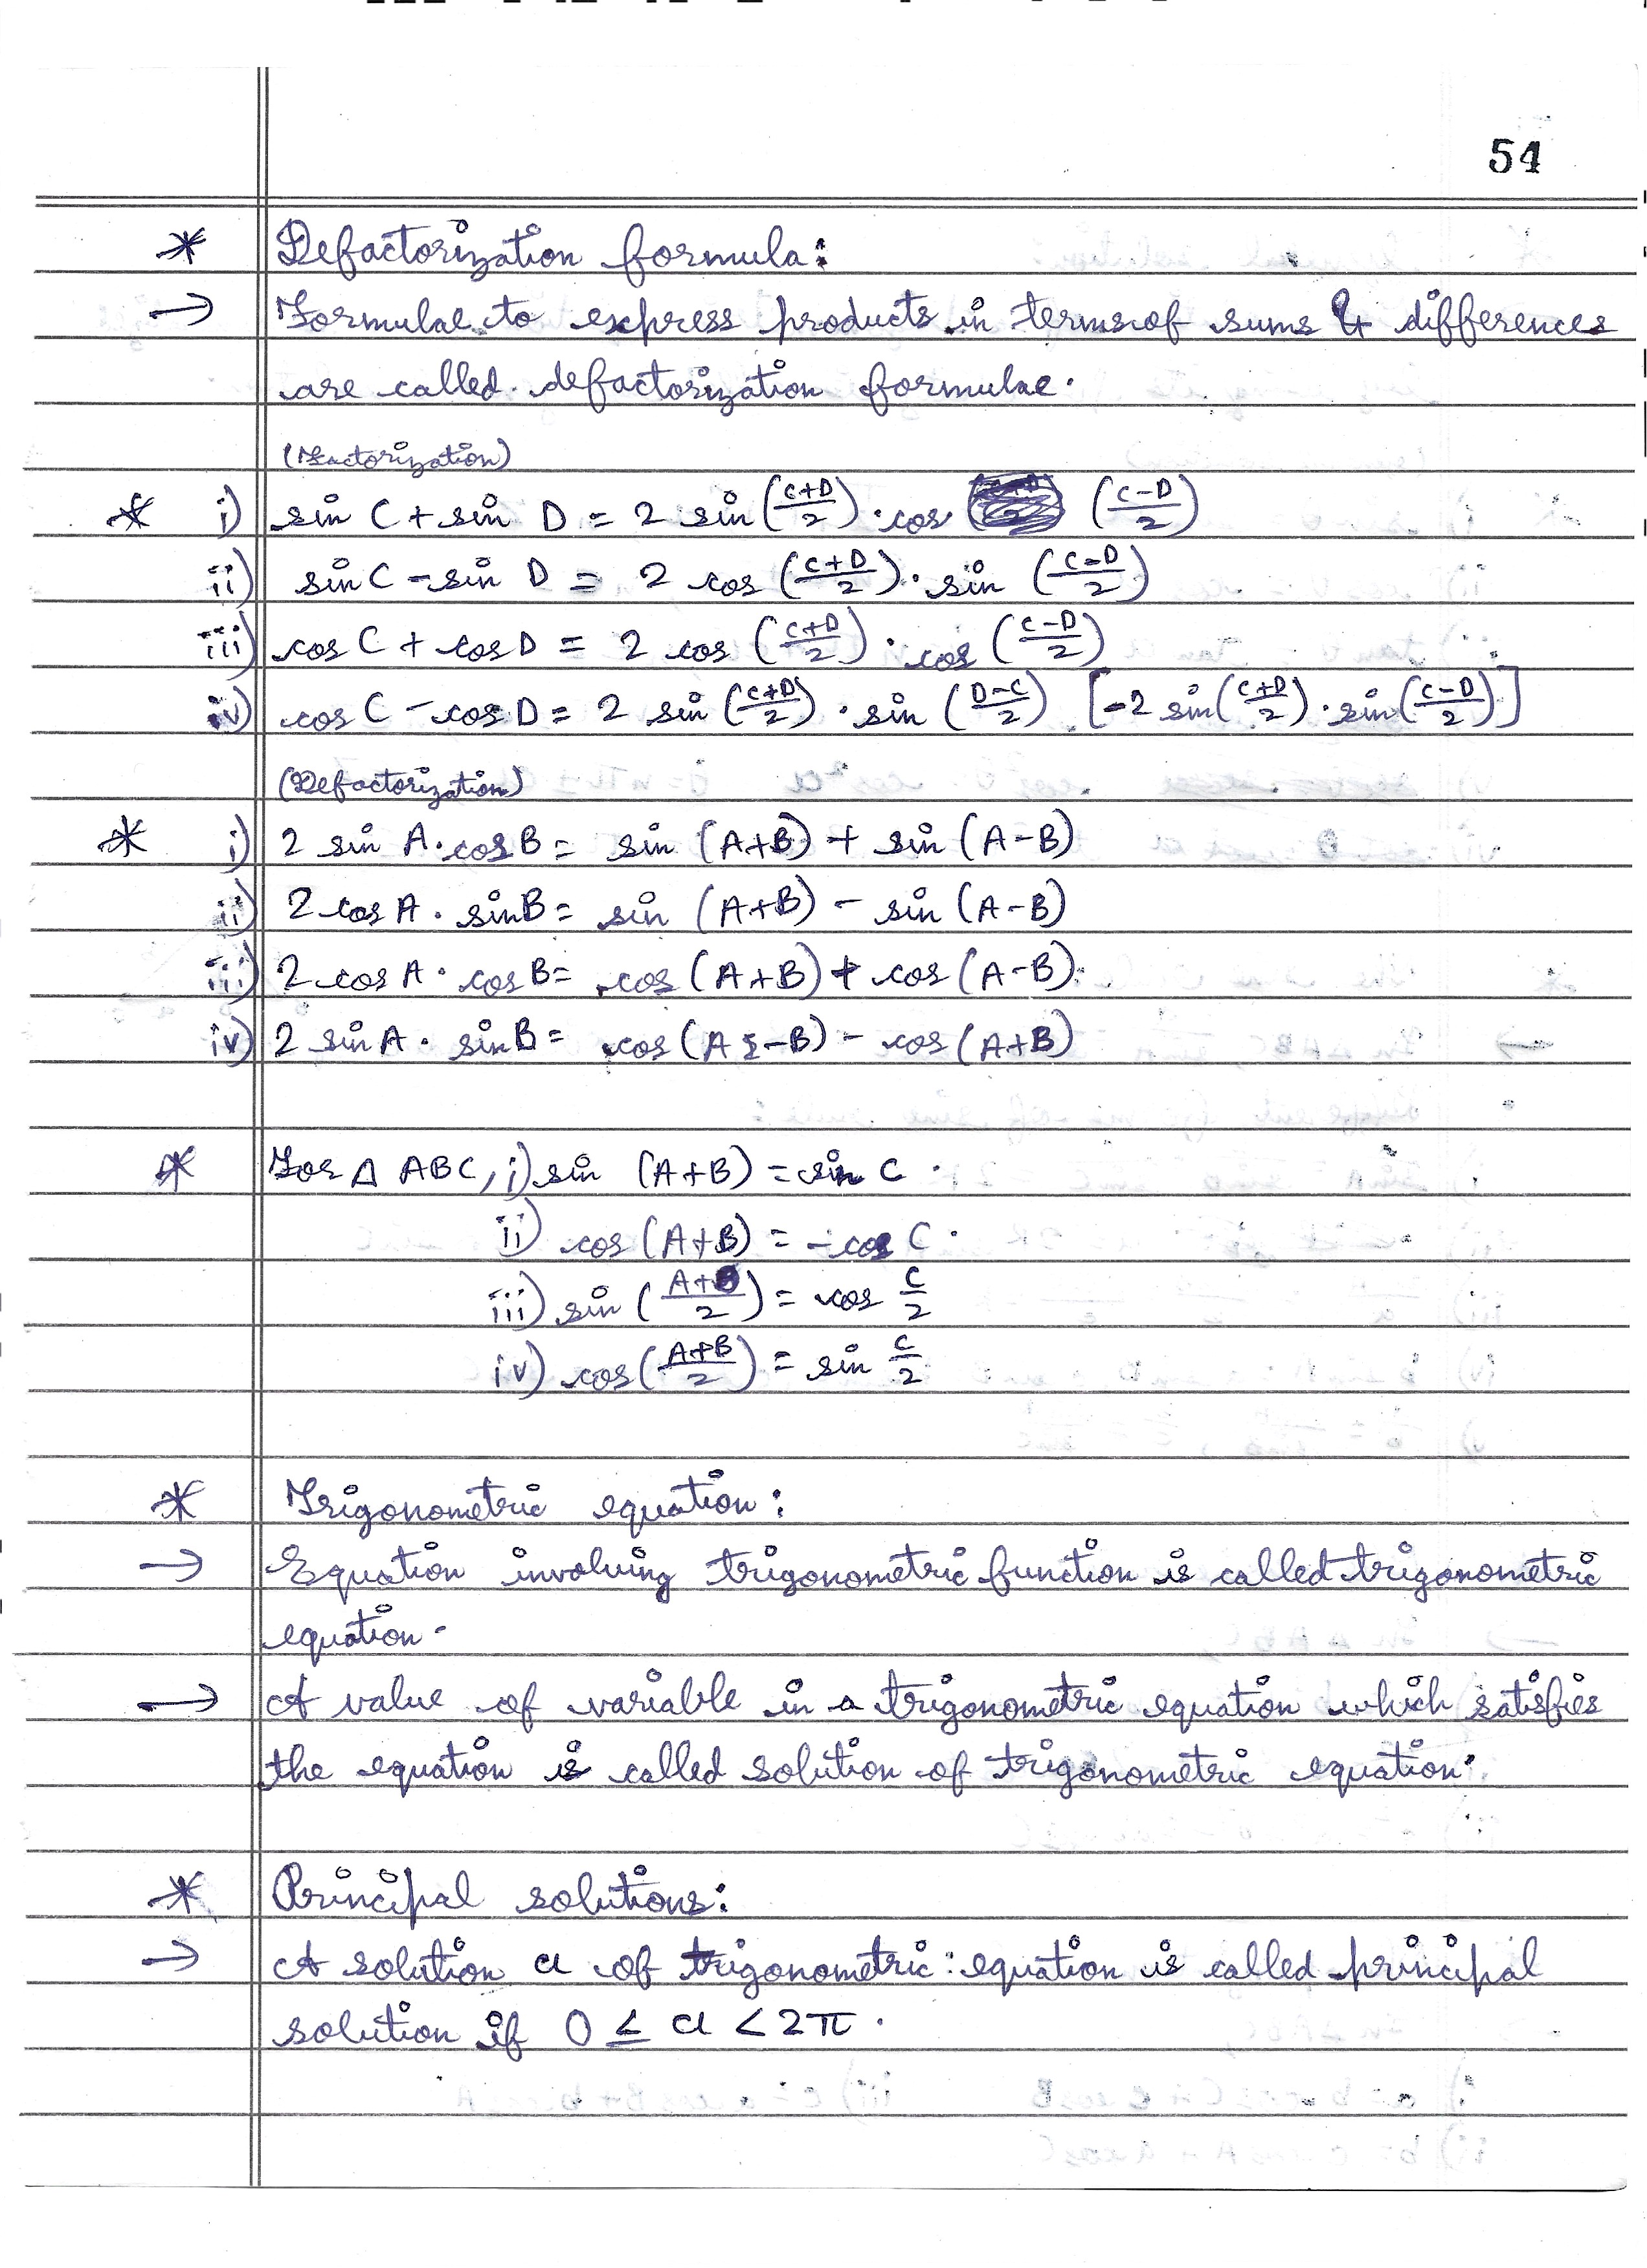 54
* Defactorization formula:
→ Formulae to express products in terms of sums & differences
are called defactorization formulae.
(Factorization)
* i) sin C + sin D = 2 sin (C+D/2) · cos (C-D/2)
ii) sin C - sin D = 2 cos (C+D/2) · sin (C-D/2)
iii) cos C + cos D = 2 cos (C+D/2) · cos (C-D/2)
iv) cos C - cos D = 2 sin (C+D/2) · sin (D-C/2) [-2 sin (C+D/2) · sin (C-D/2)]
(Defactorization)
* i) 2 sin A · cos B = sin (A+B) + sin (A-B)
ii) 2 cos A · sin B = sin (A+B) - sin (A-B)
iii) 2 cos A · cos B = cos (A+B) + cos (A-B)
iv) 2 sin A · sin B = cos (A-B) - cos (A+B)
* For Δ ABC, i) sin (A+B) = sin C.
ii) cos (A+B) = -cos C.
iii) sin (A+B/2) = cos C/2
iv) cos (A+B/2) = sin C/2
* Trigonometric equation:
→ Equation involving trigonometric function is called trigonometric
equation.
→ A value of variable in a trigonometric equation which satisfies
the equation is called solution of trigonometric equation.
* Principal solutions:
→ A solution α of trigonometric equation is called principal
solution if 0 ≤ α < 2π.